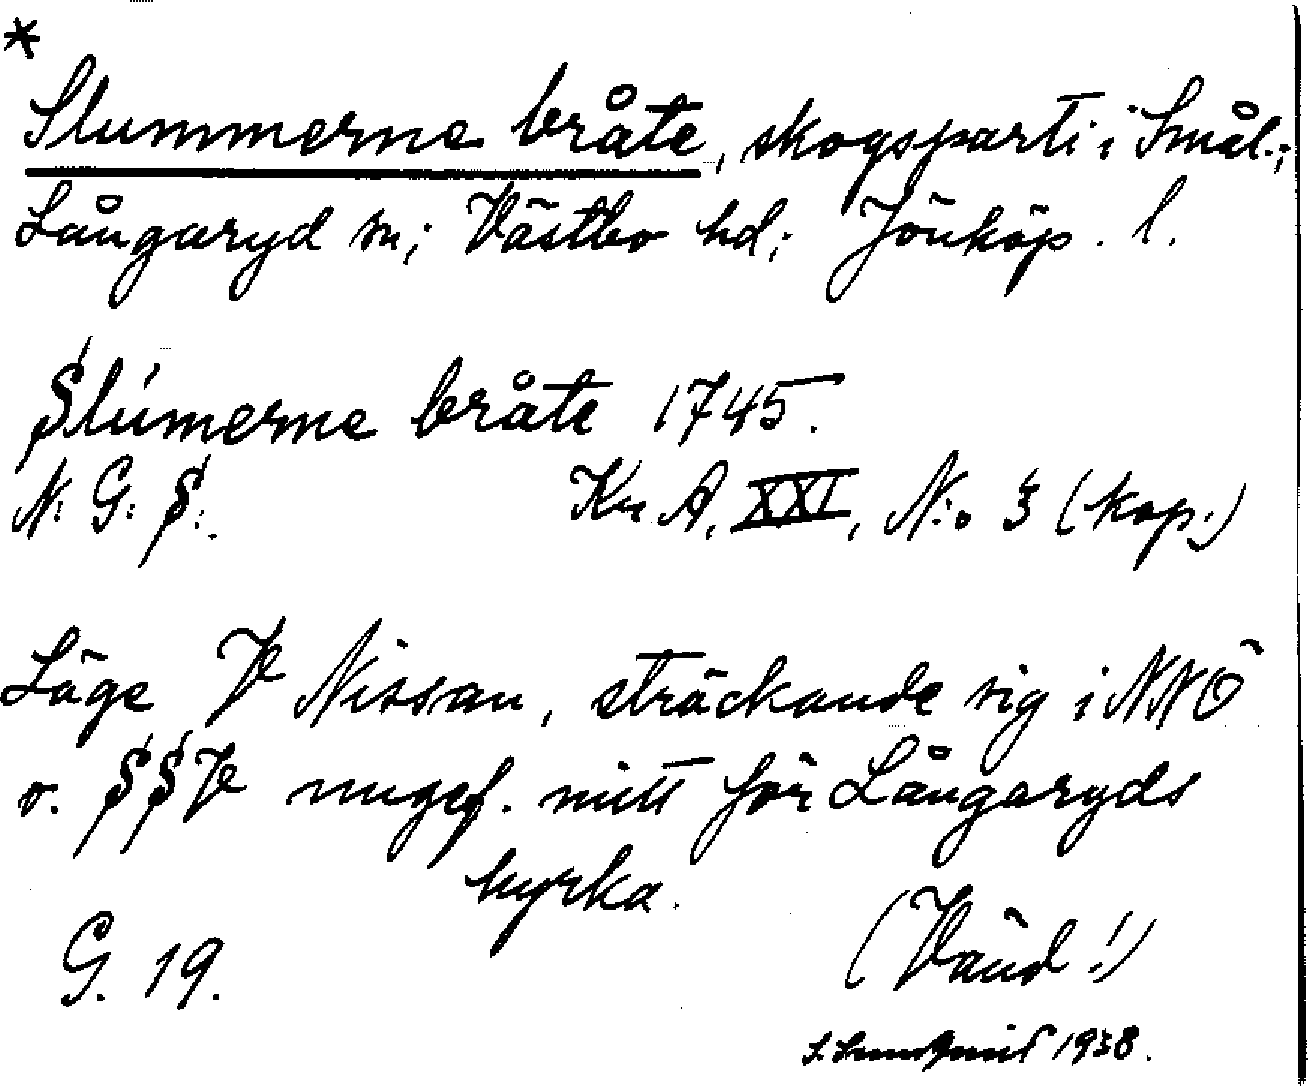 *
Slummerne bråte, skogsparti i Smål.;
Långaryd sn; Västbo hd; Jönköp. l.
Slumerne bråte 1745.
N: G: S:. Kr. A. XXI, N:o 3 (kop.)
Läge V Nissan, sträckande sig i NNÖ
o. SSV ungef. mitt för Långaryds
kyrka.
(Vänd!)
G. 19.
S. Sundqvist 1938.